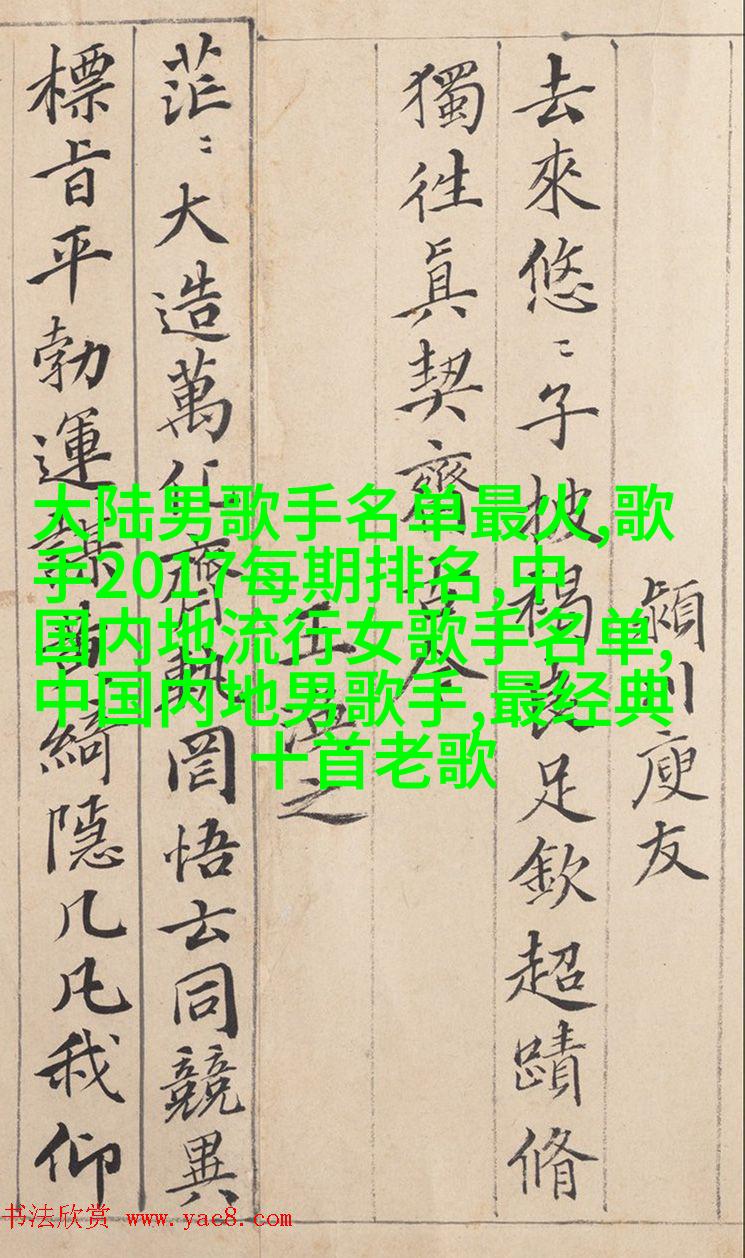 潁川庾友
去來悠〻子披褐良足欽超蹟脩
獨往真契齊古今
王渙之
茫〻大造萬化齊軌罔悟玄同競異
標旨平勃運謀黃綺隱几凡我仰
大陆男歌手名单最火,歌
手2017每期排名,中
国内地流行女歌手名单,
中国内地男歌手,最经典
十首老歌
书法欣赏 www.yac8.com